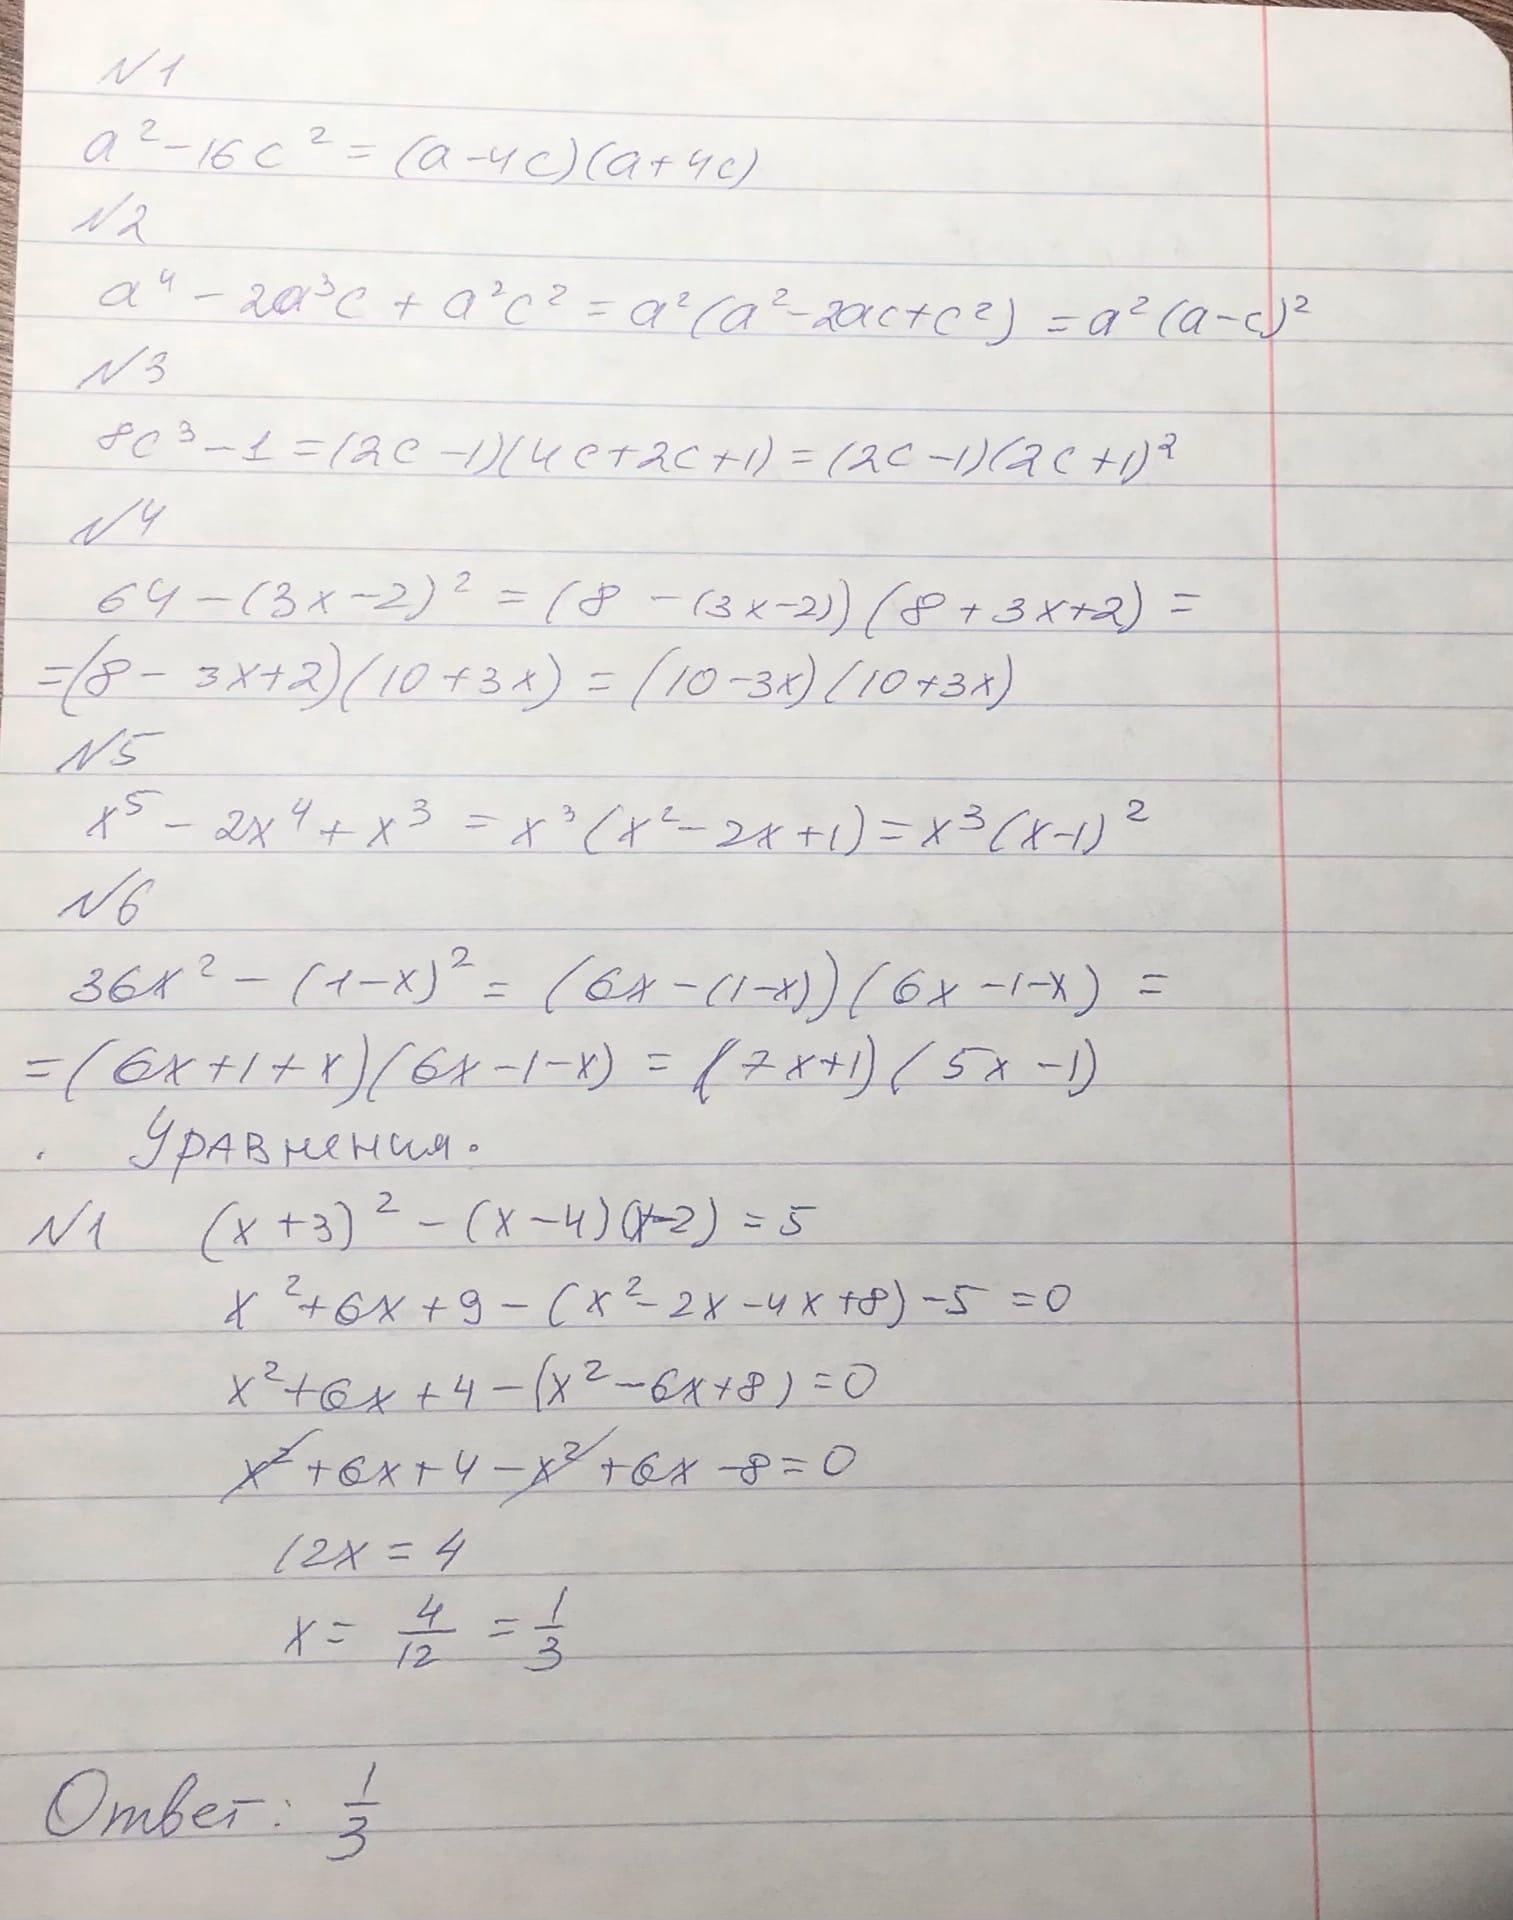 N1
a² - 16c² = (a - 4c)(a + 4c)
N2
a⁴ - 2a³c + a²c² = a²(a² - 2ac + c²) = a²(a - c)²
N3
8c³ - 1 = (2c - 1)(4c + 2c + 1) = (2c - 1)(2c + 1)²
N4
64 - (3x - 2)² = (8 - (3x - 2))(8 + 3x + 2) =
= (8 - 3x + 2)(10 + 3x) = (10 - 3x)(10 + 3x)
N5
x⁵ - 2x⁴ + x³ = x³(x² - 2x + 1) = x³(x - 1)²
N6
36x² - (1 - x)² = (6x - (1 - x))(6x - 1 - x) =
= (6x + 1 + x)(6x - 1 - x) = (7x + 1)(5x - 1)
Уравнения.
N1 (x + 3)² - (x - 4)(x - 2) = 5
x² + 6x + 9 - (x² - 2x - 4x + 8) - 5 = 0
x² + 6x + 4 - (x² - 6x + 8) = 0
x² + 6x + 4 - x² + 6x - 8 = 0
12x = 4
x = 4/12 = 1/3
Ответ: 1/3